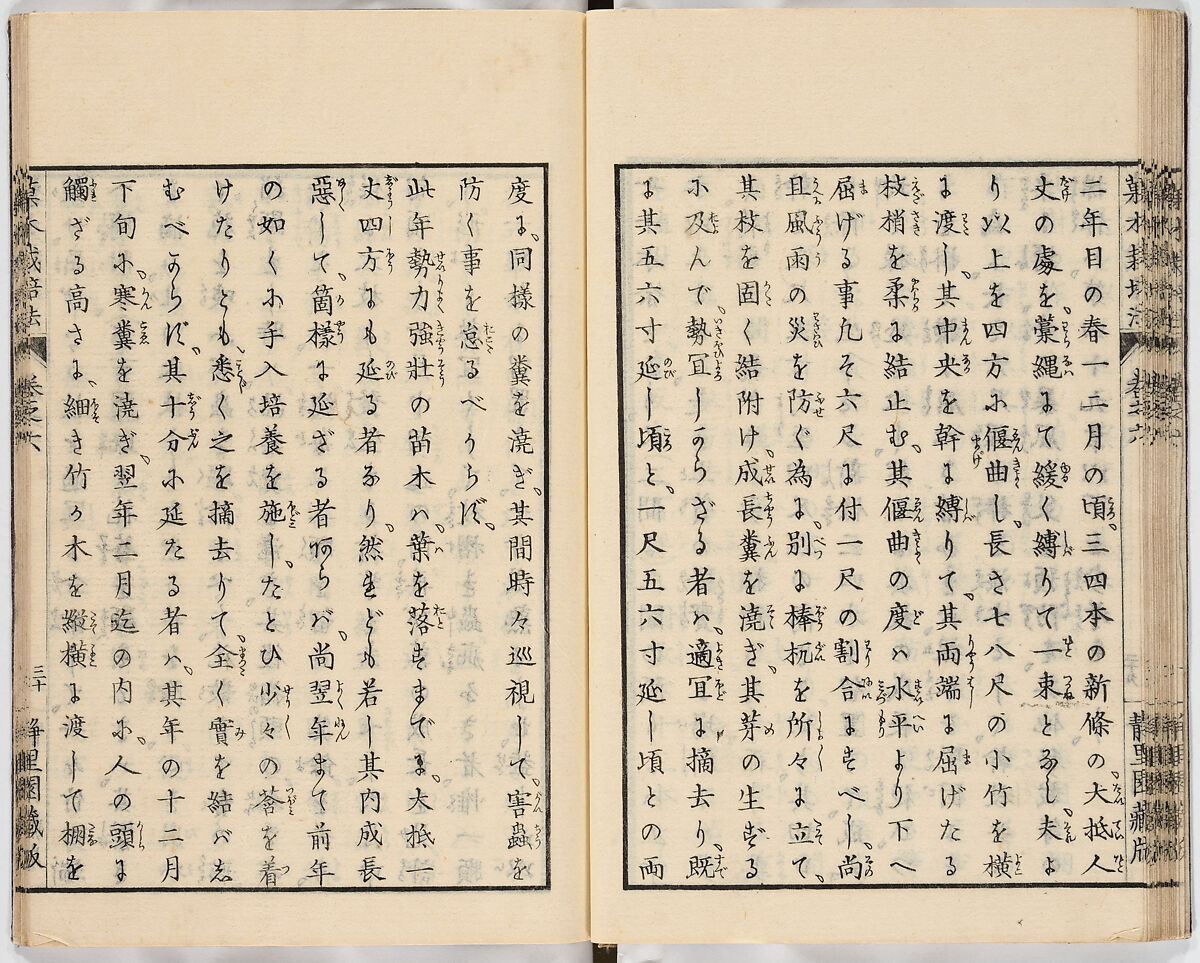 二年目の春一二月の頃、三四本の新條の大抵人
丈の處を、藁縄まて緩く縛りて一束とあし、夫よ
り以上を四方ふ偃曲し、長さ七八尺の小竹を横
ま渡し、其中央を幹ま縛りて、其両端ま屈げたる
枝梢を柔ま結止む、其偃曲の度ハ水平より下へ
屈げる事凡そ六尺ま付一尺の割合ますべし、尚
且風雨の災を防ぐ為ま、別ま棒杭を所々ま立て、
其枝を固く結附け、成長糞を澆ぎ、其芽の生ずる
ふ及んで、勢冝しからざる者ハ、適冝ま摘去り、既
ま其五六寸延し頃と、一尺五六寸延し頃との両
菓木栽培法 巻之六 静里園藏版
度ま、同様の糞を澆ぎ、其間時々巡視して、害蟲を
防く事を怠るべからず、
此年勢力強壮の苗木ハ、葉を落すまでま、大抵一
丈四方まも延る者あり、然れども若し其内成長
惡して、箇様ま延ざる者あらバ、尚翌年まて前年
の如くふ手入培養を施し、たとひ少々の莟を着
けたりとも、悉く之を摘去りて、全く實を結バし
むべからず、其十分ふ延たる者ハ、其年の十二月
下旬ふ、寒糞を澆ぎ、翌年二月迄の内ふ、人の頭ま
觸ざる高さま、細き竹か木を縱横ま渡して棚を
菓木栽培法 巻之六 三十 静里園藏版